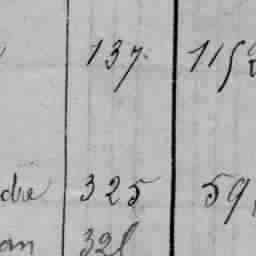 137. 115
dre 325 59
an 328